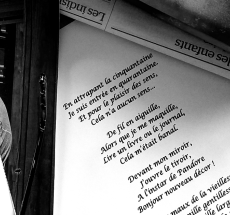 Les Indis
des enfants
En attrapant la cinquantaine
Je suis entrée en quarantaine.
Et pour le plaisir des sens,
Cela n'a aucun sens...
De fil en aiguille,
Alors que je me maquille,
Lire un livre ou le journal,
Cela m'était banal.
Devant mon miroir,
J'ouvre le tiroir,
A l'instar de Pandore
Bonjour nouveau décor !
maux de la vieilles
gentilles